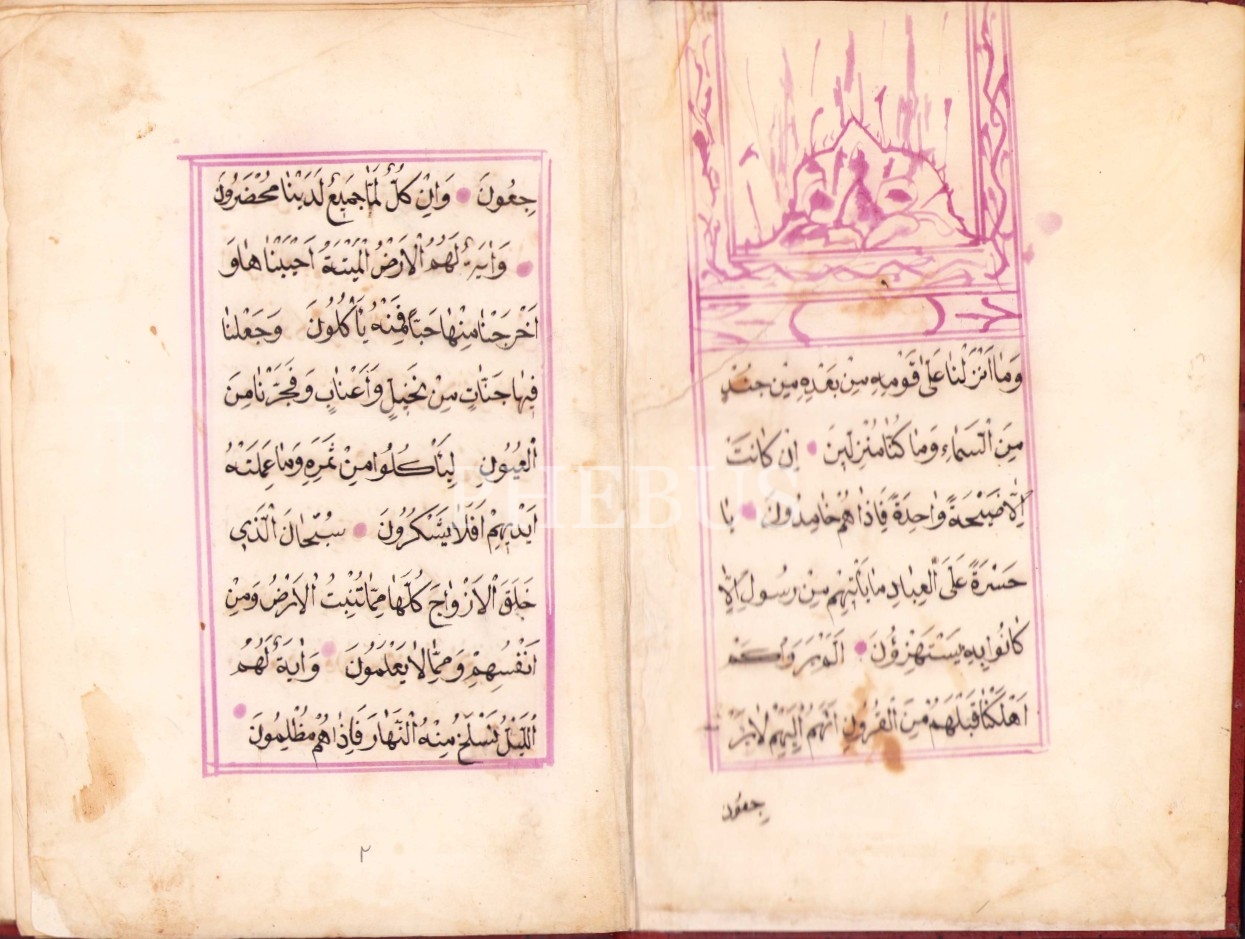 وَمَا اَنْزَلْنَا عَلٰى قَوْمِهٖ مِنْ بَعْدِهٖ مِنْ جُنْدٍ
مِنَ الْسَّمَاءِ وَمَا كُنَّا مُنْزِلٖينَ اِنْ كَانَتْ
اِلَّا صَيْحَةً وَاحِدَةً فَاِذَا هُمْ خَامِدُونَ يَا
حَسْرَةً عَلَى الْعِبَادِ مَا يَأْتٖيهِمْ مِنْ رَسُولٍ اِلَّا
كَانُوا بِهٖ يَسْتَهْزِؤُنَ اَلَمْ يَرَوْا كَمْ
اَهْلَكْنَا قَبْلَهُمْ مِنَ الْقُرُونِ اَنَّهُمْ اِلَيْهِمْ لَا يَرْ
جِعُونَ
جِعُونَ وَاِنْ كُلٌّ لَمَّا جَمٖيعٌ لَدَيْنَا مُحْضَرُونَ
وَاٰيَةٌ لَهُمُ الْاَرْضُ الْمَيْتَةُ اَحْيَيْنَاهَا وَ
اَخْرَجْنَا مِنْهَا حَبًّا فَمِنْهُ يَأْكُلُونَ وَجَعَلْنَا
فٖيهَا جَنَّاتٍ مِنْ نَخٖيلٍ وَاَعْنَابٍ وَفَجَّرْنَا مِنَ
الْعُيُونِ لِيَأْكُلُوا مِنْ ثَمَرِهٖ وَمَا عَمِلَتْهُ
اَيْدٖيهِمْ اَفَلَا يَشْكُرُونَ سُبْحَانَ الَّذٖى
خَلَقَ الْاَزْوَاجَ كُلَّهَا مِمَّا تُنْبِتُ الْاَرْضُ وَمِنْ
اَنْفُسِهِمْ وَمِمَّا لَا يَعْلَمُونَ وَاٰيَةٌ لَهُمُ
الَّيْلُ نَسْلَخُ مِنْهُ النَّهَارَ فَاِذَا هُمْ مُظْلِمُونَ
٢
PHEBUS